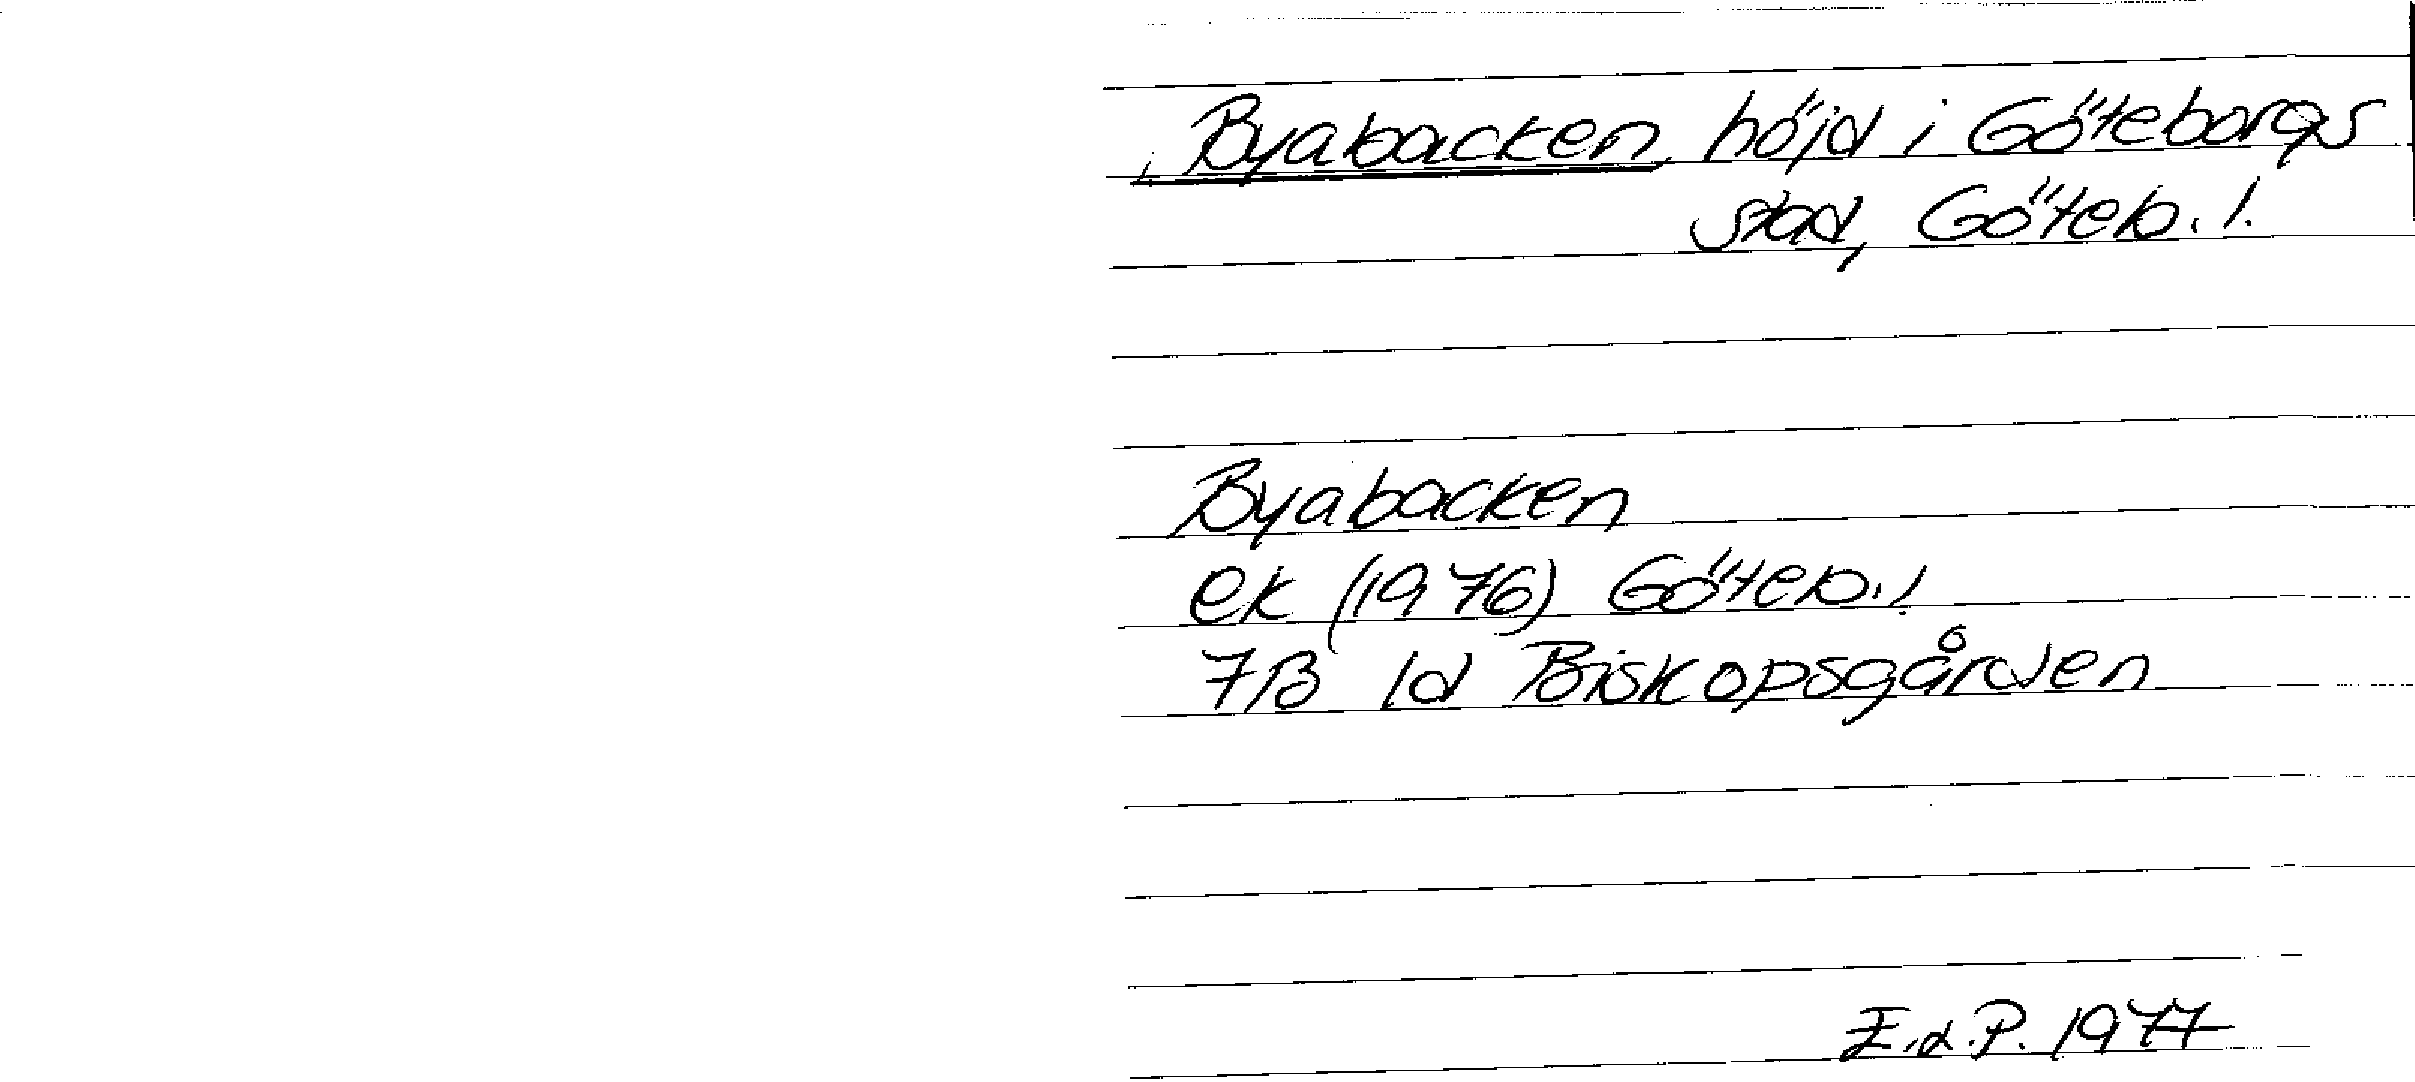 Byabacken, höjd i Göteborgs
stad, Göteb. l.
Byabacken
ek (1976) Göteb. l
7B 1d Biskopsgården
E.d.P. 1977